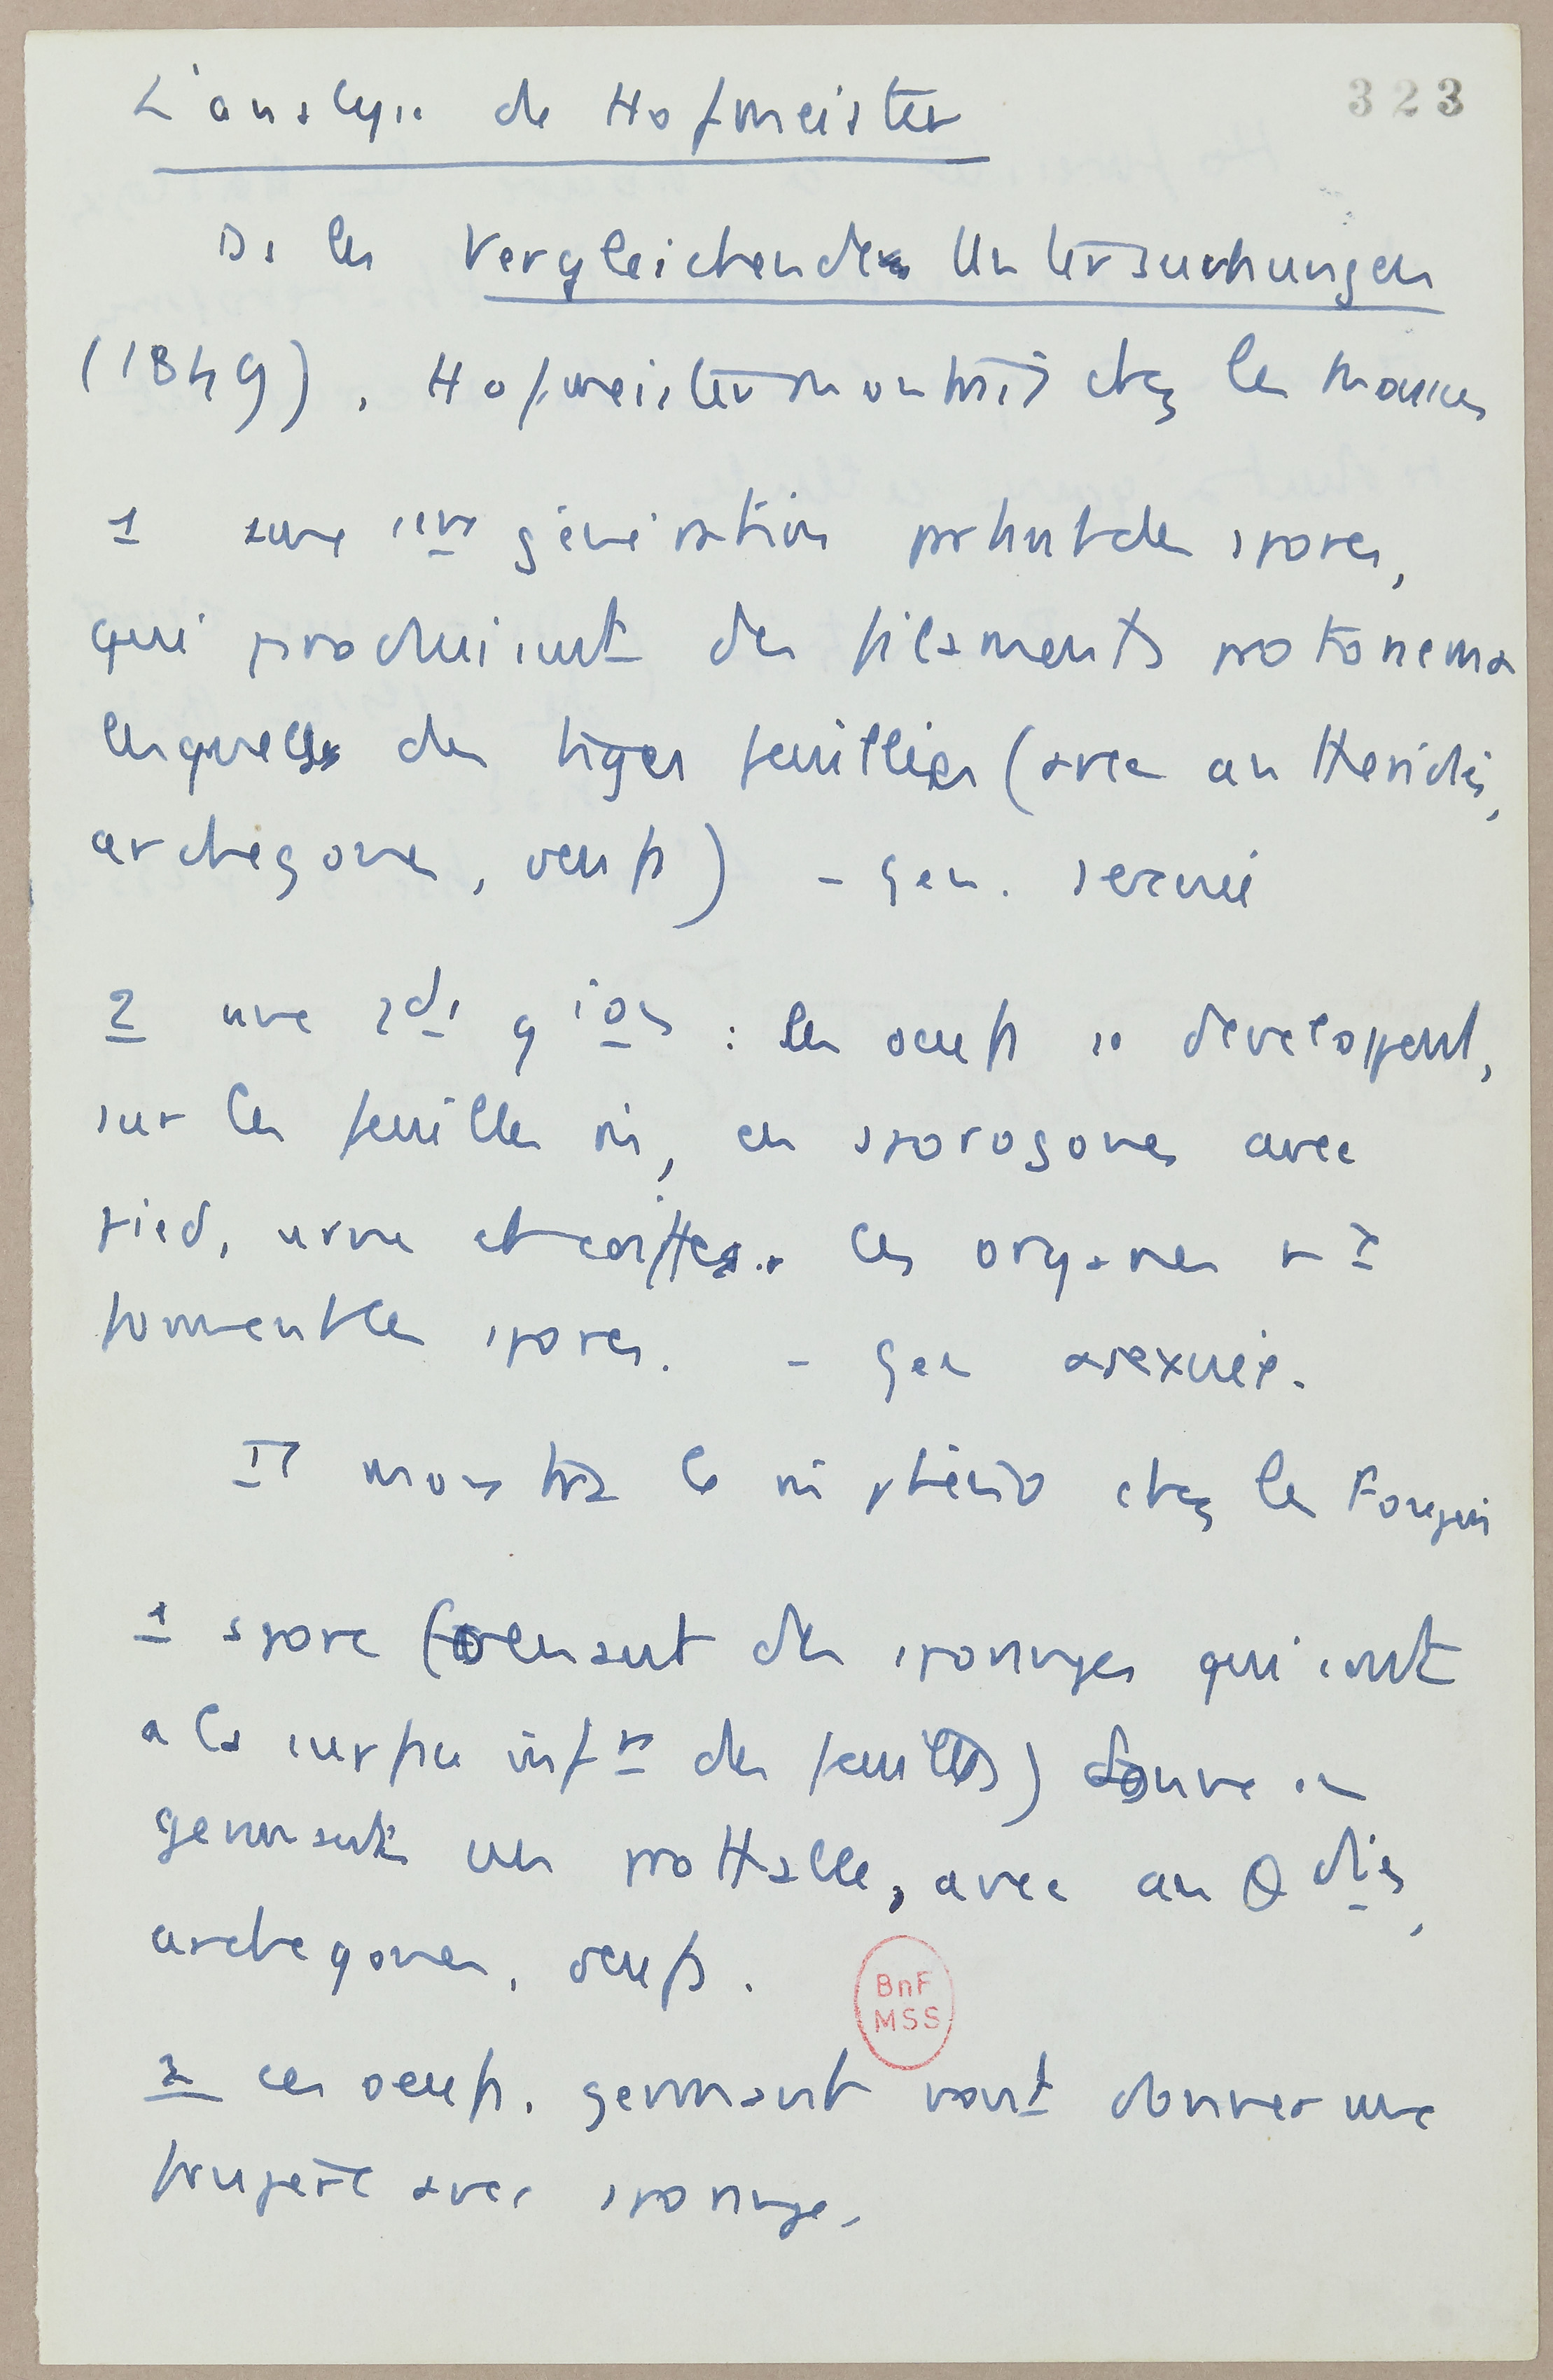 323
L'analyse de Hofmeister
Ds les Vergleichende Untersuchungen
(1849), Hofmeister montrait chez les mousses
1 une 1ère génération portant des spores,
qui produisent des filaments protonema
lesquels des tiges feuillées (avec antheridies,
archegones, oeufs) - gen. sexuée
2 une 2de gion : les oeufs se developpent,
sur les feuilles, en sporogones avec
pied, urne et coiffe. Ces organes
forment les spores. - Gen asexuée.
Il montra le chez les Fougères
1 spore (venant des sporanges qui sont
a la surface infre des feuilles) donne en
germant un prothalle, avec an θ dies,
archegones, oeufs.
BnF
MSS
2 ces oeufs, germant vont donner une
fougère avec sporange.